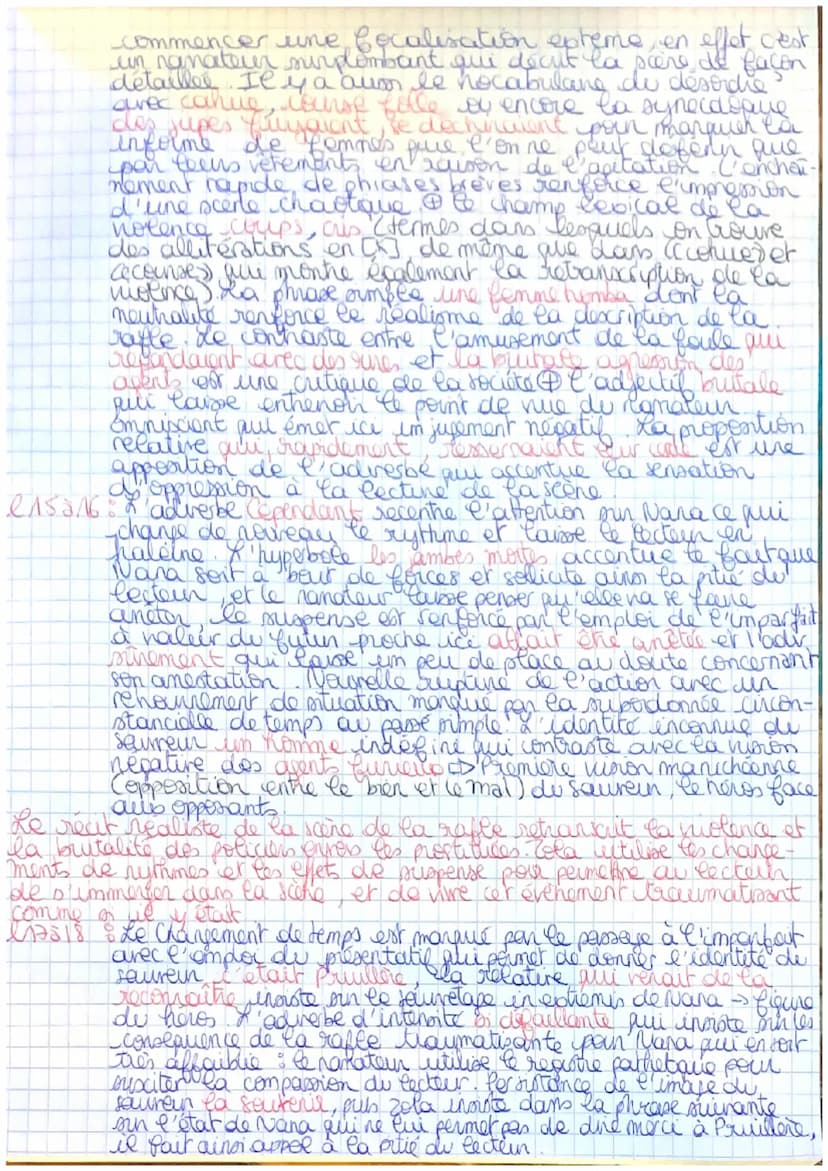 commencer une focalisation externe, en effet c'est
un narrateur surplombant qui décrit la scène de façon
détaillée. Il y a aussi le vocabulaire du désordre
avec cohue, course folle ou encore la synecdoque
des jupes fuyaient, se déchiraient pour marquer la
informe de femmes que l'on ne peut définir que
par leurs vêtements en raison de l'agitation. L'enchaî-
nement rapide de phrases brèves renforce l'impression
d'une scène chaotique ⊕ le champ lexical de la
violence coups, cris (termes dans lesquels on trouve
des allitérations en [K] de même que dans «cohue» et
«course» qui montre également la retranscription de la
violence). La phrase simple une femme tomba dont la
neutralité renforce le réalisme de la description de la
rafle. Le contraste entre l'amusement de la foule qui
regardaient avec des rires et la brutale agression des
agents est une critique de la société ⊕ l'adjectif brutale
qui laisse entrevoir le point de vue du narrateur
omniscient qui émet ici un jugement négatif. La proposition
relative qui, rapidement, resserraient leur cercle est une
apposition de l'adverbe qui accentue la sensation
d'oppression à la lecture de la scène.
l 15 à 16 : L'adverbe Cependant recentre l'attention sur Nana ce qui
change de nouveau le rythme et laisse le lecteur en
haleine. L'hyperbole les jambes mortes accentue le fait que
Nana soit à bout de forces et sollicite ainsi la pitié du
lecteur, et le narrateur laisse penser qu'elle va se faire
arrêter, le suspense est renforcé par l'emploi de l'imparfait
à valeur du futur proche ici allait être arrêtée et l'adv
sûrement qui laisse un peu de place au doute concernant
son arrestation. Nouvelle rupture de l'action avec un
retournement de situation marqué par la subordonnée circon-
stancielle de temps au passé simple. L'identité inconnue du
sauveur un homme indéfini qui contraste avec la vision
négative des agents furieux ⇒ Première vision manichéenne
(opposition entre le bien et le mal) du sauveur, le héros face
aux opposants.
Le récit réaliste de la scène de la rafle retranscrit la violence et
la brutalité des policiers envers les prostituées. Zola utilise les change-
ments de rythmes et les effets de suspense pour permettre au lecteur
de s'immerger dans la scène, et de vivre cet évènement traumatisant
comme si il y était.
l 17 à 18 : Le Changement de temps est marqué par le passage à l'imparfait
avec l'emploi du présentatif qui permet de donner l'identité du
sauveur c'était Prullière, la relative qui venait de la
reconnaître, insiste sur le sauvetage in extremis de Nana → figure
du héros. L'adverbe d'intensité si défaillante qui insiste sur les
conséquence de la rafle traumatisante pour Nana qui en sort
très affaiblie : le narrateur utilise le registre pathétique pour
susciter la compassion du lecteur. Persistance de l'image du
sauveur la soutenir, puis Zola insiste dans la phrase suivante
sur l'état de Nana qui ne lui permet pas de dire merci à Prullière,
il fait ainsi appel à la pitié du lecteur.